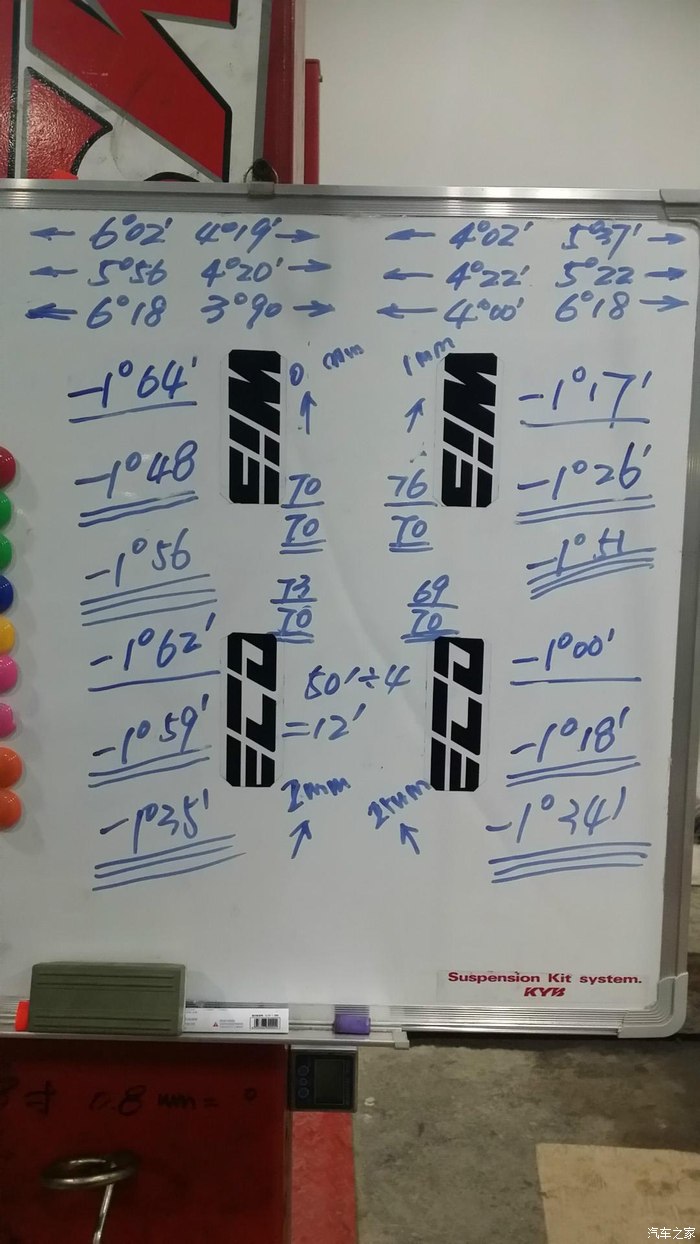 ← 6°02' 4°19' → ← 4°02' 5°37' →
← 5°56 4°20' → ← 4°22' 5°22 →
← 6°18 3°90 → ← 4°00' 6°18' →
0 mm 1mm
-1°64' -1°17'
-1°48 70 76 -1°26'
70 70
-1°56 -1°51
73 69
70 70
-1°62' -1°00'
50'÷4
=12'
-1°59' -1°18'
2mm 2mm
-1°35' -1°34'
Suspension Kit system.
KYB
0.8mm=
汽车之家